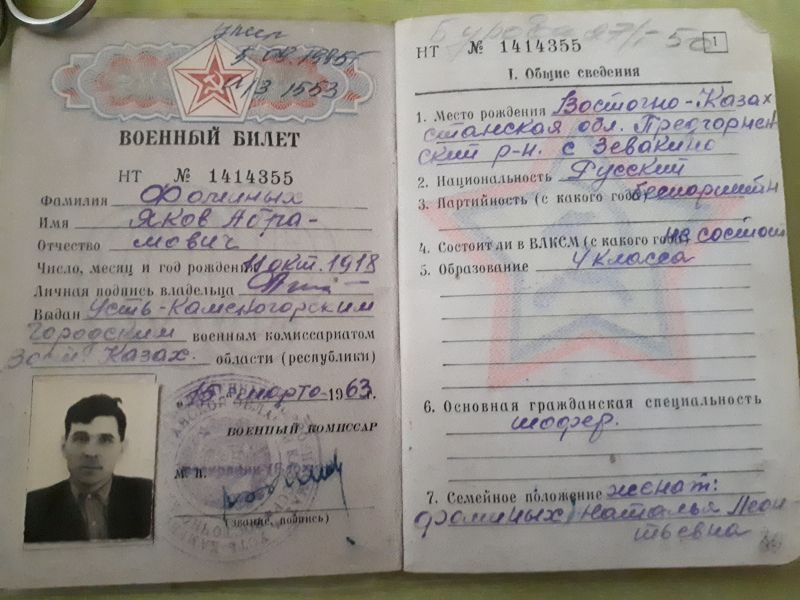 умер
5.03.1985г
№3 1553
ВОЕННЫЙ БИЛЕТ
НТ № 1414355
Фамилия Фоминых
Имя Яков Абра-
Отчество мович
Число, месяц и год рождения 11 окт. 1918
Личная подпись владельца
Выдан Усть-Каменогорским
городским военным комиссариатом
Вост. Казах. области (республики)
15 марта 1963 г.
ВОЕННЫЙ КОМИССАР
М. П.
(звание, подпись)
1
НТ № 1414355
I. Общие сведения
1. Место рождения Восточно-Казах
станская обл. Предгорнен
ский р-н. с Зевакино
2. Национальность Русский
3. Партийность (с какого года) беспартийн
4. Состоит ли в ВЛКСМ (с какого года) не состоит
5. Образование 4 класса
6. Основная гражданская специальность
шофер.
7. Семейное положение женат:
Фоминых Наталья Леон
тьевна